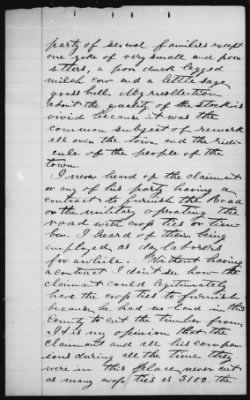 party of several families except
one yoke of very small and poor
steers, a poor duck legged
milch cow and a little sage
grass bull. My recollection
about the quality of the stock is
vivid because it was the
common subject of remark
all over the town and the ridi-
cule of the people of the
town.
I never heard of the claimant
or any of his party having a
contract to furnish the Road
or the military operating the
road with cross ties or tim-
ber. I heard of them being
employed as day laborers
for awhile. Without having
a contract I didn't see how the
claimant could legitimately
have the cross ties to furnish
because he had no land in this
county to cut the timber from.
It is my opinion that the
claimant and all his compan-
ions during all the time they
were in this place never cut
as many cross ties as 3100. the